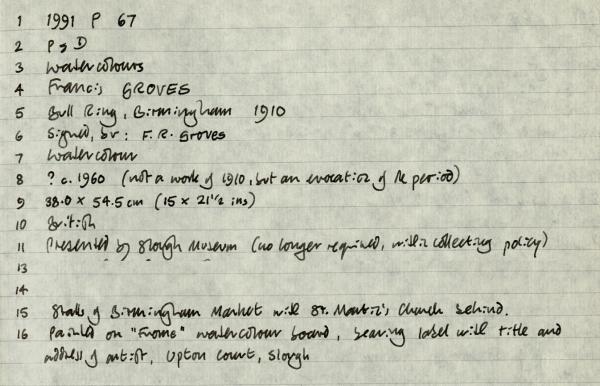 1 1991 P 67
2 P & D
3 Watercolours
4 Francis GROVES
5 Bull Ring, Birmingham 1910
6 Signed, br: F. R. Groves
7 Watercolour
8 ? c. 1960 (not a work of 1910, but an evocation of the period)
9 38.0 x 54.5 cm (15 x 21 1/2 ins)
10 British
11 Presented by Slough Museum (no longer required, within collecting policy)
13
14
15 Stalls of Birmingham Market with St. Martin's Church behind.
16 Painted on "Frome" watercolour board, bearing label with title and
address of artist, Upton Court, Slough